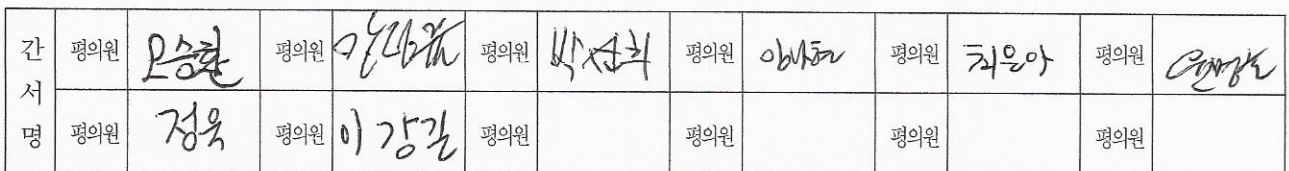 간서명 평의원 오승환 평의원 평의원 박삼희 평의원 평의원 최은아 평의원
평의원 정욱 평의원 이강길 평의원 평의원 평의원 평의원